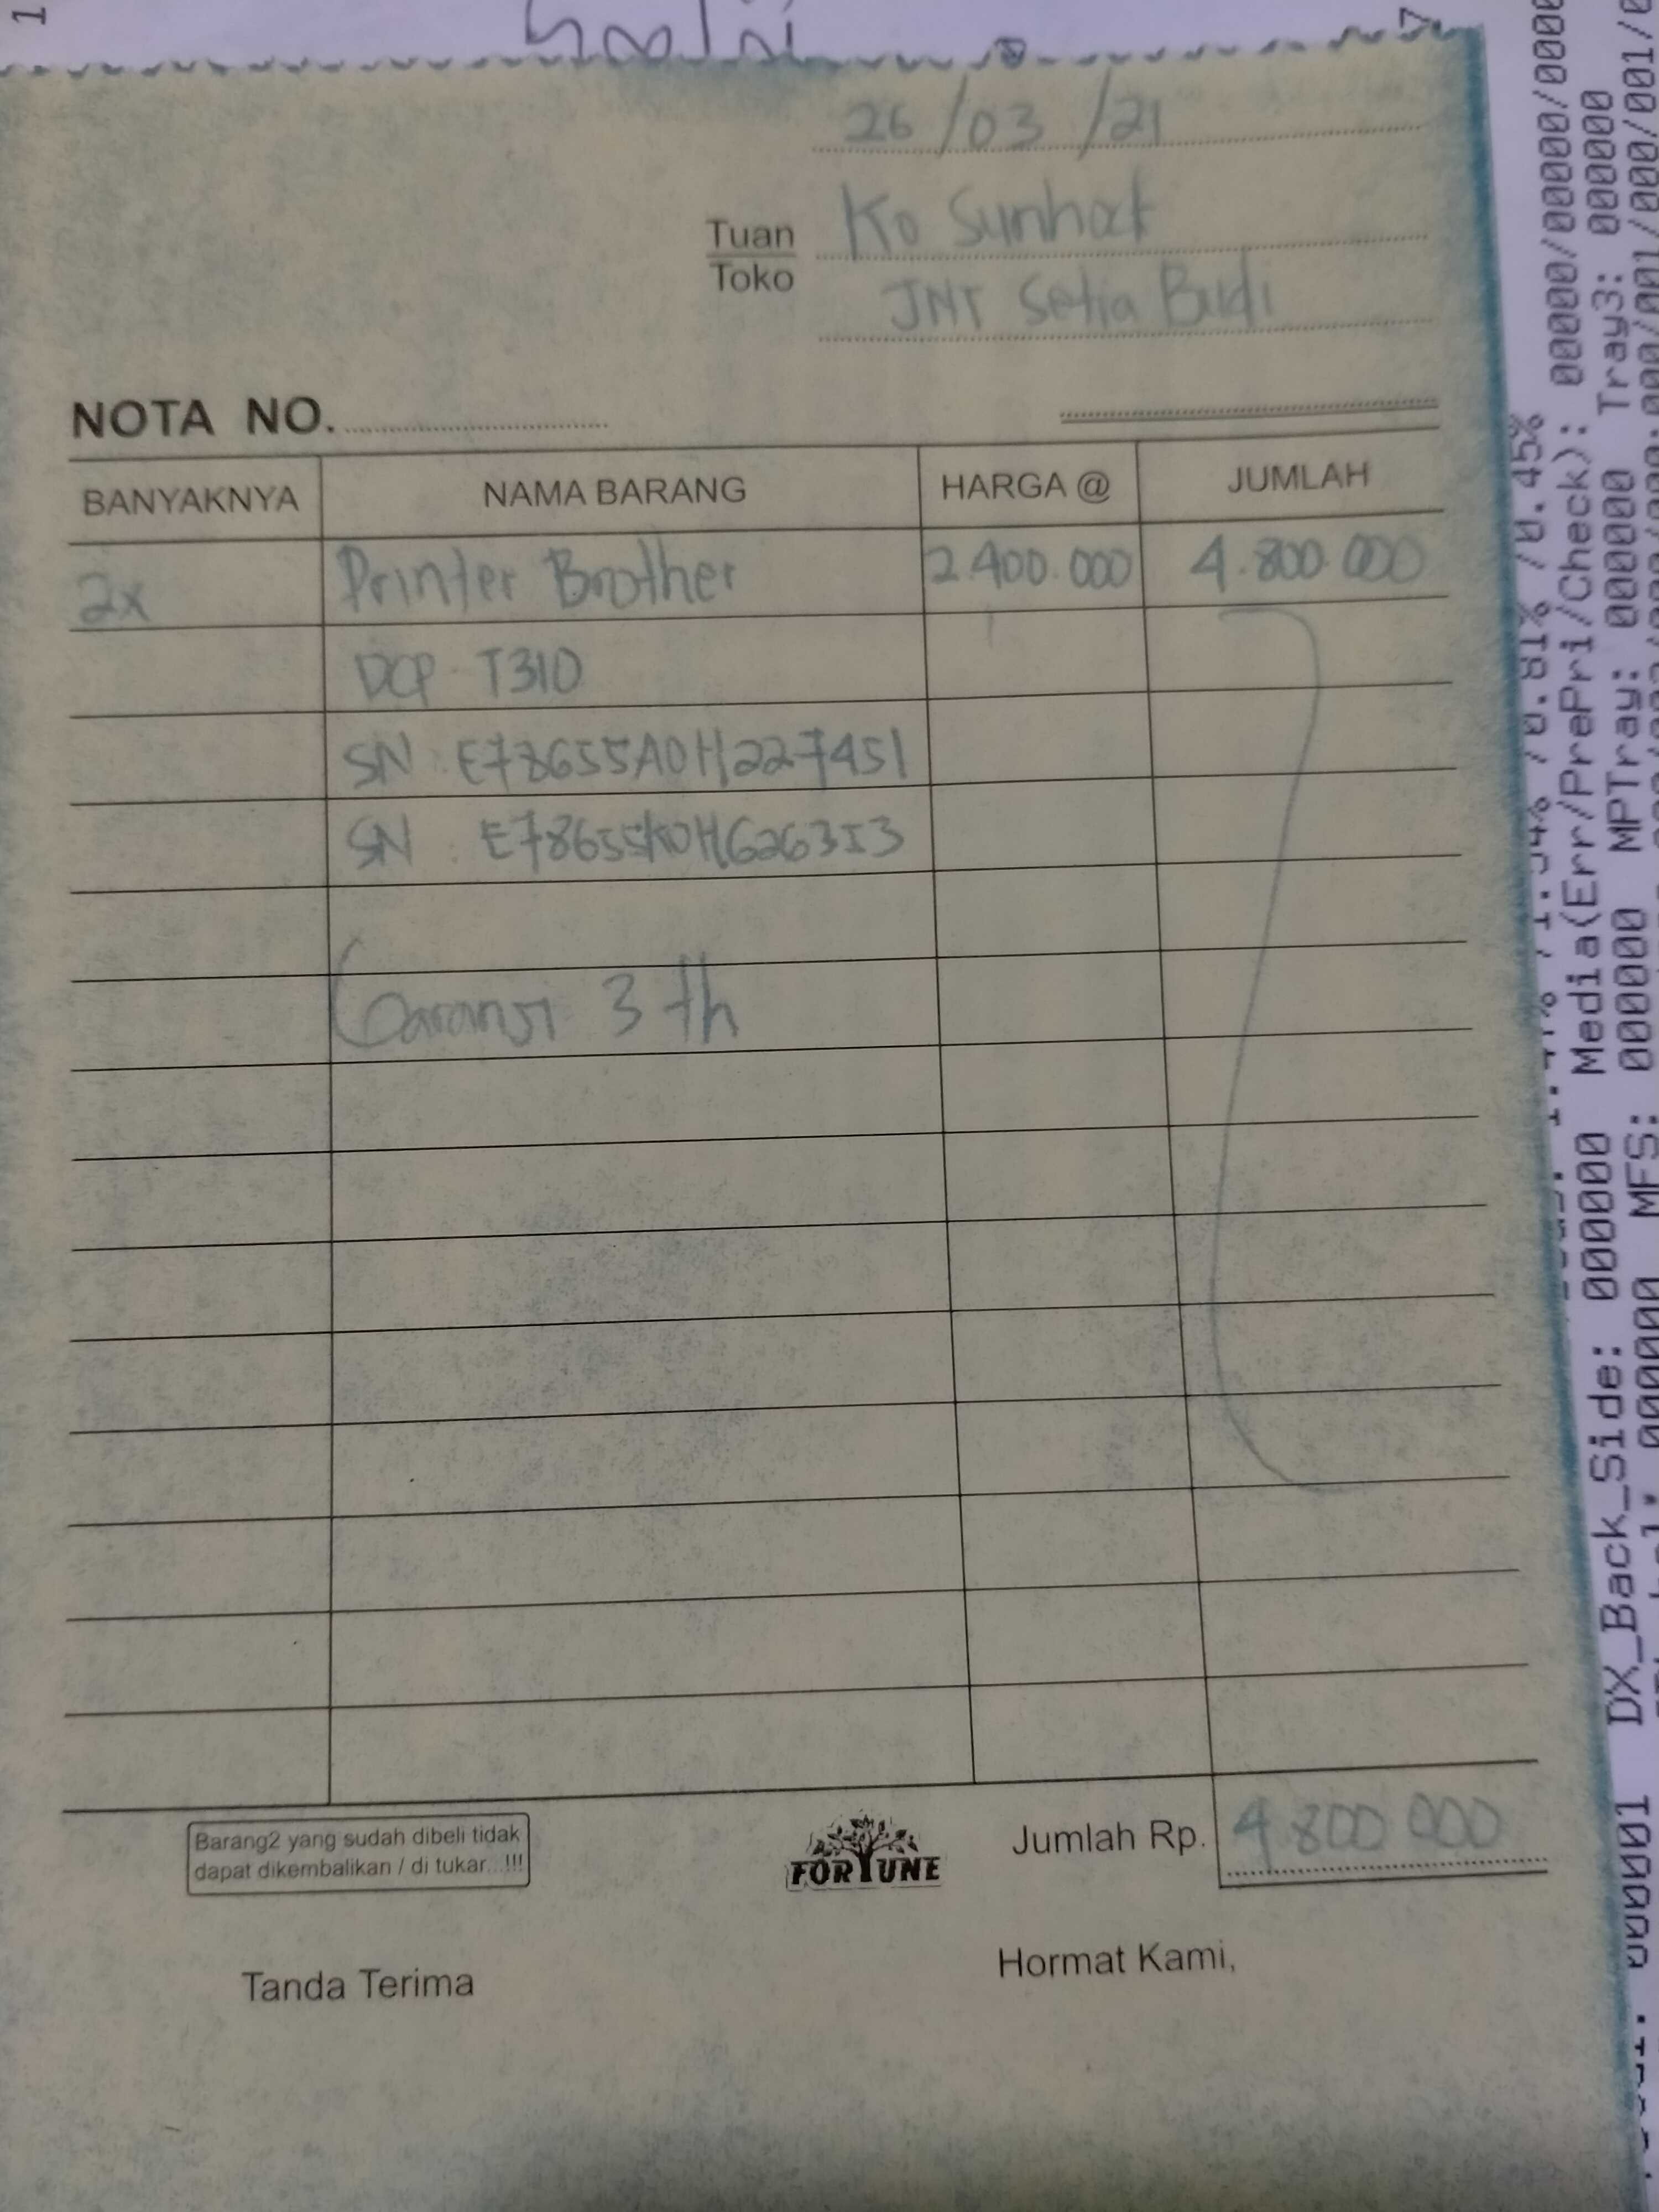 26/03/21
Tuan Ko Sunhat
Toko JNT Setia Budi
NOTA NO.
BANYAKNYA NAMA BARANG HARGA @ JUMLAH
2x Printer Brother 2.400.000 4.800.000
DCP T310
SN : E78655A0H227451
SN :
Garansi 3 th
Barang2 yang sudah dibeli tidak
dapat dikembalikan / di tukar...!!!
FORTUNE
Jumlah Rp. 4.800.000
Tanda Terima
Hormat Kami,
/0.81% /0.45%
Media(Err/PrePri/Check): 00000/00000/0000
DX_Back_Side: 000000 MPTray: 000000 Tray3: 000000
MFS: 000000